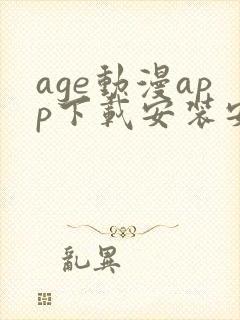 age動漫ap
p下載安裝安
亂異